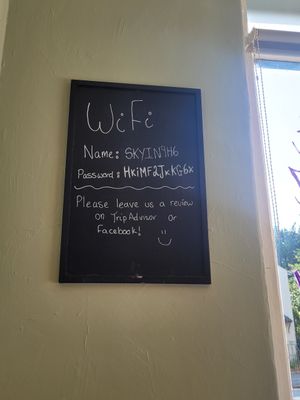 WiFi
Name: SKYIN9H6
Password: HKiMF2JxKG6x
Please leave us a review
on TripAdvisor or
Facebook!